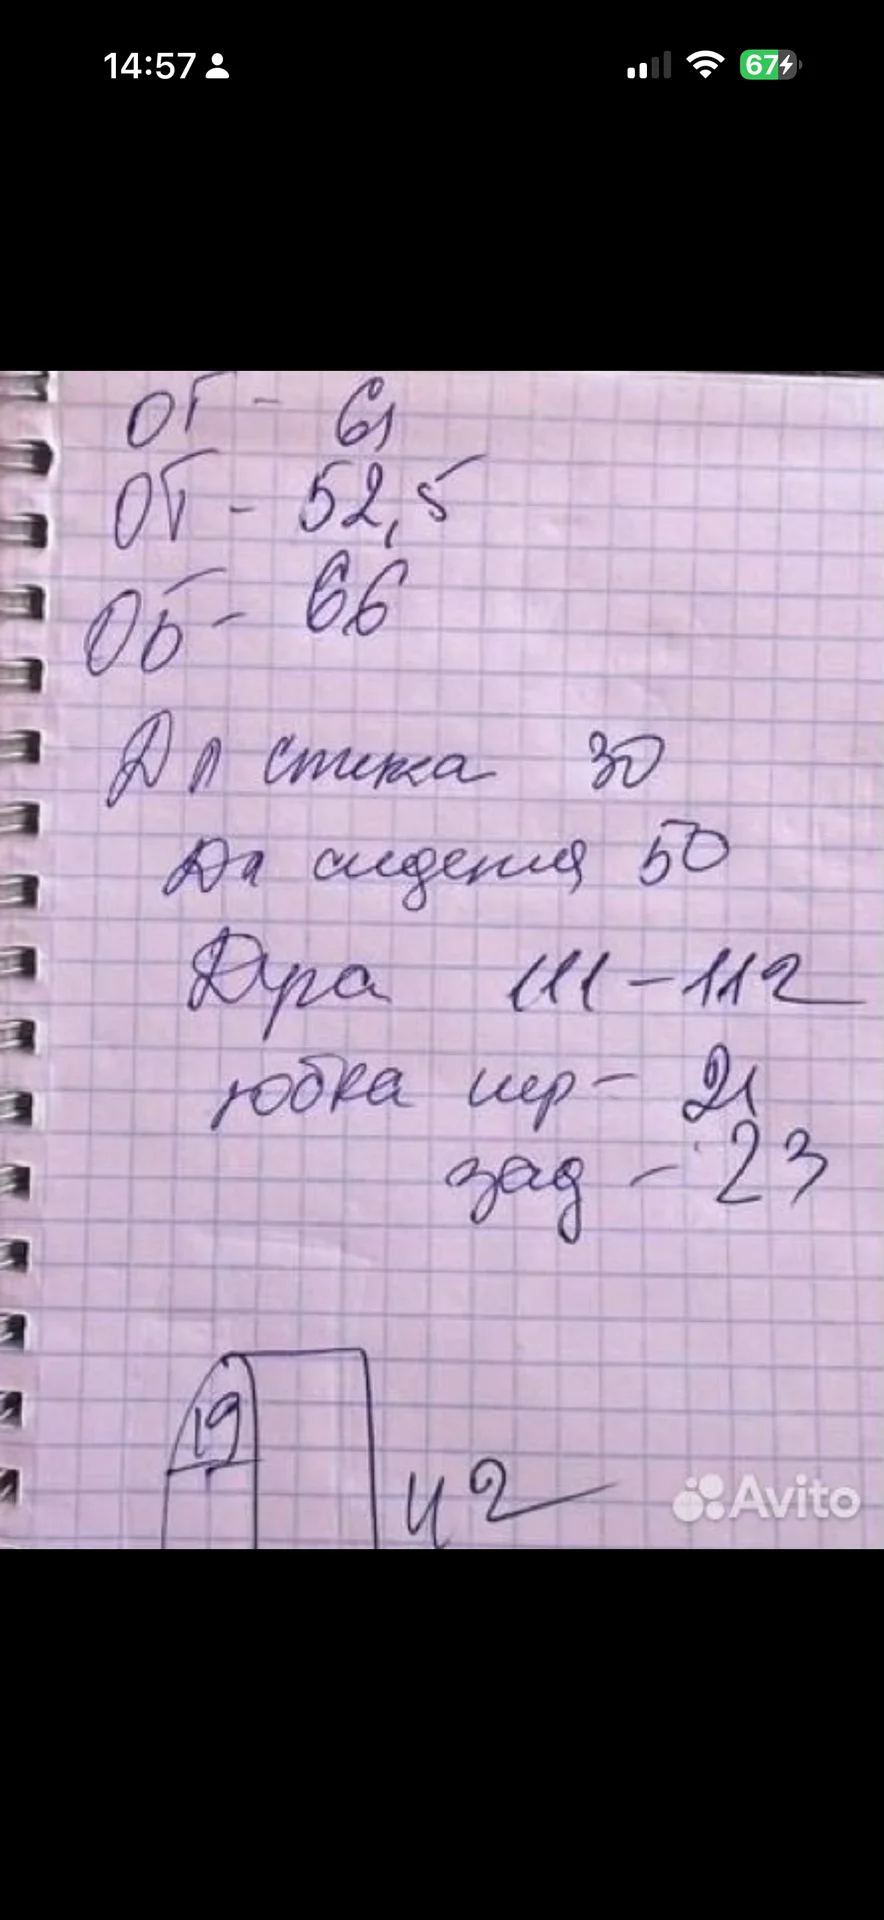 14:57
67
ОГ - 61
ОТ - 52,5
ОБ - 66
Дл спинка 30
Дл сидения 50
Дуга 111-112
юбка пер - 21
зад - 23
19
42
Avito